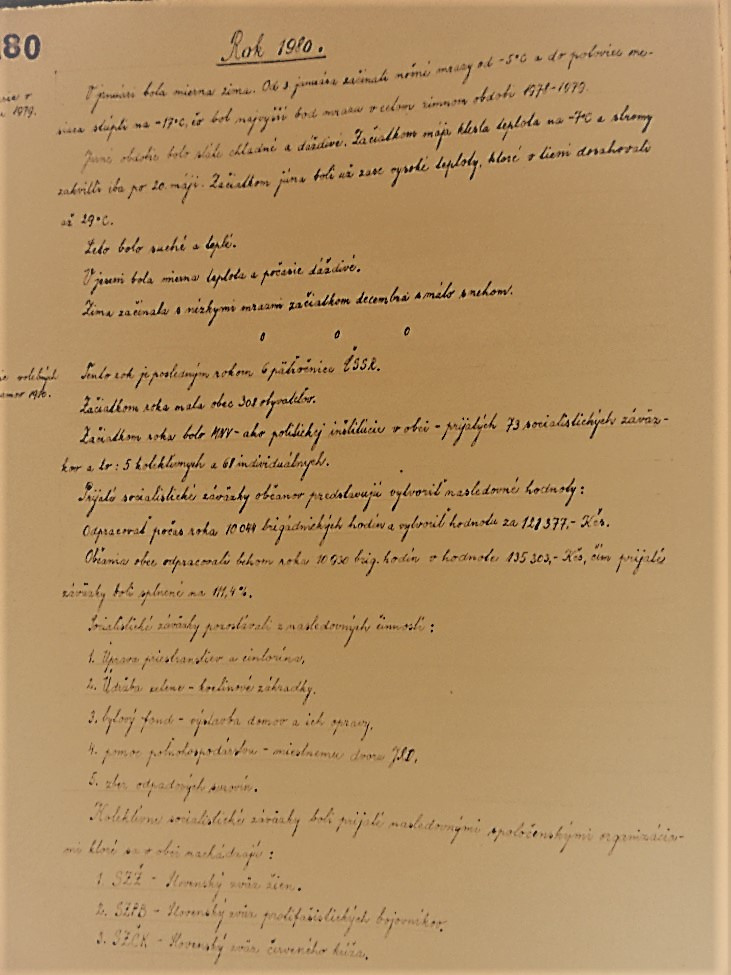 180
Rok 1980.
V januári bola mierna zima. Od 3 januára začínali nočné mrazy od -5°C a do polovice me-
siaca stúpli na -17°C, čo bol najvyšší bod mrazu v celom zimnom období 1978-1979.
1979.
Jarné obdobie bolo stále chladné a dáždivé. Začiatkom mája klesla teplota na -7°C a stromy
zakvitli iba po 20. máji. Začiatkom júna boli už zase vysoké teploty, ktoré v tieni dosahovali
až 29°C.
Leto bolo suché a teplé.
V jeseni bola mierna teplota a počasie dáždivé.
Zima začínala s nízkymi mrazmi začiatkom decembra s málo snehom.
o o o
volebných
Tento rok je posledným rokom 6 päťročnice ČSSR.
Začiatkom roka mala obec 308 obyvateľov.
Začiatkom roka bolo MNV - ako politickej inštitúcie v obci - prijatých 73 socialistických záväz-
kov a to: 5 kolektívnych a 68 individuálnych.
Prijaté socialistické záväzky občanov predstavujú vytvoriť nasledovné hodnoty:
Odpracovať počas roka 10 044 brigádnických hodín a vytvoriť hodnotu za 128 377,- Kčs.
Občania obce odpracovali behom roka 10 930 brig. hodín v hodnote 135 303,- Kčs, čím prijaté
záväzky boli splnené na 111,4%.
Socialistické záväzky pozostávali z nasledovných činností:
1. Úprava priestranstiev a cintorína,
2. Údržba zelene - kvetinové záhradky,
3. bytový fond - výstavba domov a ich opravy,
4. pomoc poľnohospodárstvu - miestnemu dvoru JRD,
5. zber odpadových surovín.
Kolektívne socialistické záväzky boli prijaté nasledovnými spoločenskými organizácia-
mi ktoré sa v obci nachádzajú:
1. SZŽ - Slovenský zväz žien.
2. SZPB - Slovenský zväz protifašistických bojovníkov.
3. SZČK - Slovenský zväz červeného kríža.